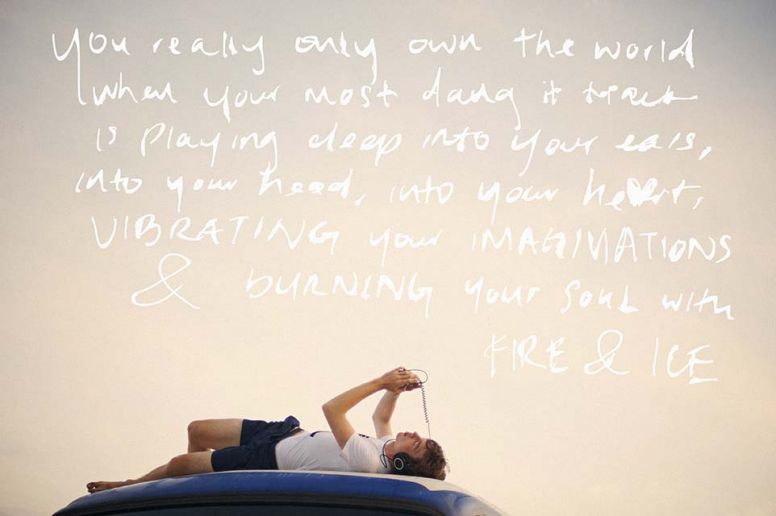 you really only own the world
when your most dang it track
is playing deep into your ears,
into your head, into your heart,
VIBRATING your IMAGINATIONS
& bURNING your SOUL with
FIRE & ICE